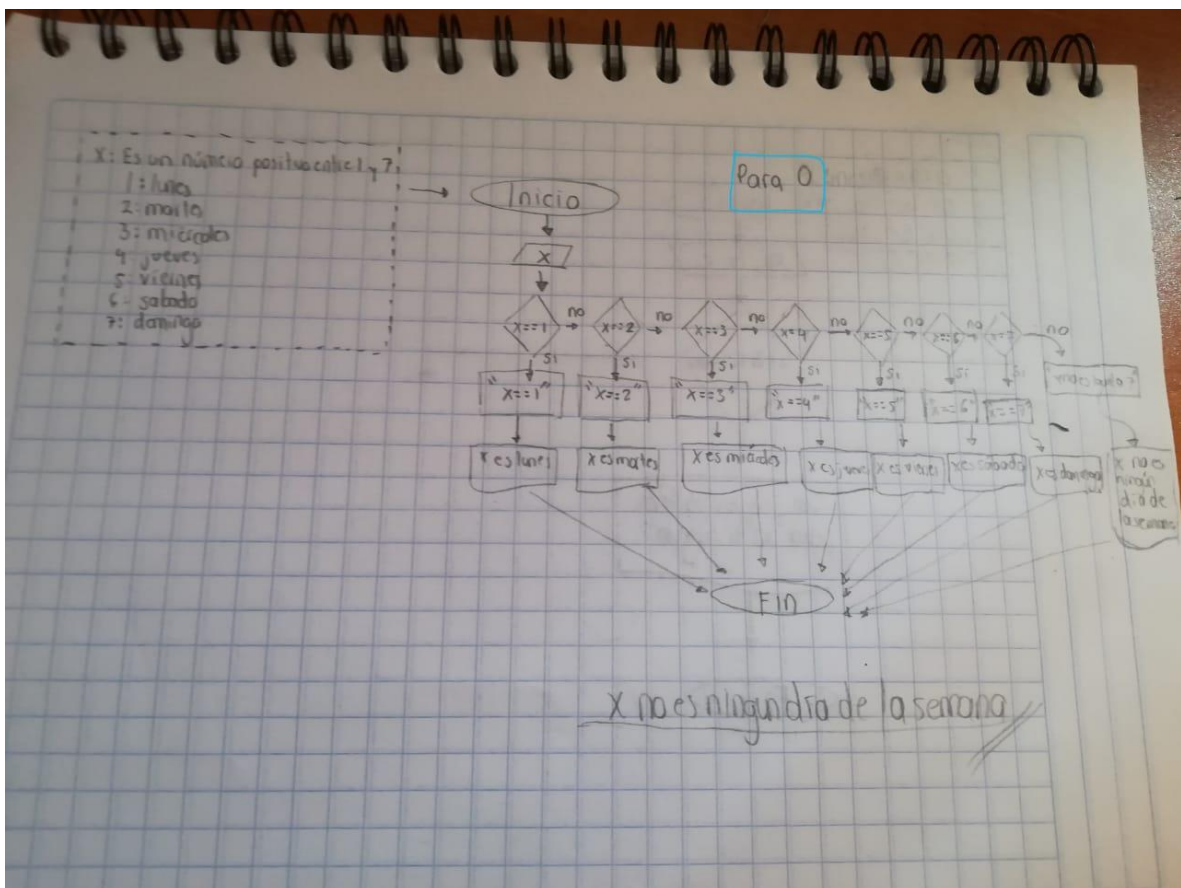 X: Es un número positivo entre 1 y 7.
1: lunes
2: martes
3: miércoles
4: jueves
5: viernes
6: sabado
7: domingo
Para 0
Inicio
X
X==1 no X==2 no X==3 no X=4 no X==5 no X==6 no no
Si Si Si Si Si Si Si
"X==1" "X==2" "X==3" "X==4" "X==5" "X==6" "X==7"
X es lunes X es martes X es miércoles X es jueves X es viernes X es sabado X es domingo X no es ningún día de la semana
FIN
X no es ningun dia de la semana